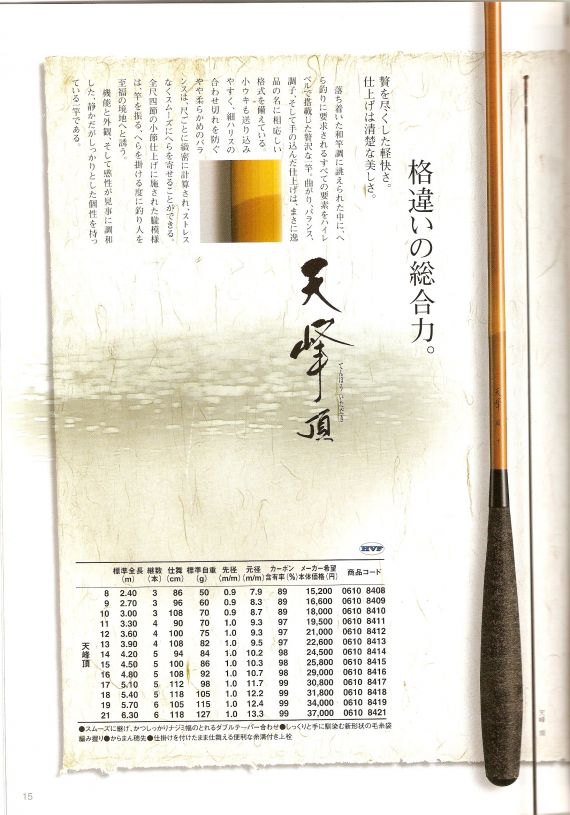 格違いの総合力。
贅を尽くした軽快さ。
仕上げは清楚な美しさ。
落ち着いた和竿調に誂えられた中に、へ
ら釣りに要求されるすべての要素をハイレ
ベルで搭載した贅沢な一竿。曲がり、バランス、
調子、そして手の込んだ仕上げは、まさに逸
品の名に相応しい
格式を備えている。
小ウキも送り込み
やすく、細ハリスの
合わせ切れを防ぐ
やや柔らかめのバラ
ンスは、尺ごとに緻密に計算され、ストレス
なくスムーズにへらを寄せることができる。
全尺四節の小節仕上げに施された朧模様
は、竿を振る、へらを掛ける度に釣り人を
至福の境地へと誘う。
機能と外観、そして感性が見事に調和
した、静かだがしっかりとした個性を持っ
ている一竿である。
天峰 頂
てんほう いただき
HVF
標準全長(m) 継数(本) 仕舞(cm) 標準自重(g) 先径(m/m) 元径(m/m) カーボン含有率(%) メーカー希望本体価格(円) 商品コード
天峰頂
8 2.40 3 86 50 0.9 7.9 89 15,200 0610 8408
9 2.70 3 96 60 0.9 8.3 89 16,600 0610 8409
10 3.00 3 108 70 0.9 8.7 89 18,000 0610 8410
11 3.30 4 90 70 1.0 9.3 97 19,500 0610 8411
12 3.60 4 100 75 1.0 9.3 97 21,000 0610 8412
13 3.90 4 108 82 1.0 9.5 97 22,600 0610 8413
14 4.20 5 94 84 1.0 10.2 98 24,500 0610 8414
15 4.50 5 100 86 1.0 10.3 98 25,800 0610 8415
16 4.80 5 108 92 1.0 10.7 98 29,000 0610 8416
17 5.10 5 112 98 1.0 11.7 99 30,800 0610 8417
18 5.40 5 118 105 1.0 12.2 99 31,800 0610 8418
19 5.70 6 105 115 1.0 12.4 99 34,000 0610 8419
21 6.30 6 118 127 1.0 13.3 99 37,000 0610 8421
●スムーズに継げ、かつしっかりナジミ幅のとれるダブルテーパー合わせ●しっくりと手に馴染む新形状の毛糸袋
編み握り●からまん穂先●仕掛けを付けたまま仕舞える便利な糸溝付き上栓
天峰 頂
15